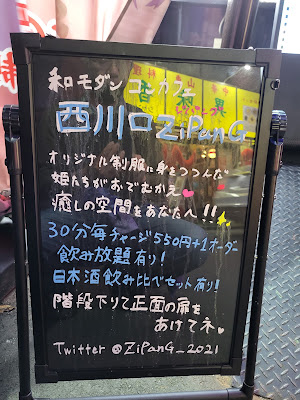 和モダン コンカフェ
西川口ZiPanG
オリジナル制服に身をつつんだ
姫たちがおでむかえ
癒しの空間をあなたへ!!
30分毎チャージ550円+1オーダー
飲み放題有り!
日本酒飲み比べセット有り!
階段下りて正面の扉を
あけてネ
Twitter @ZiPanG_2021